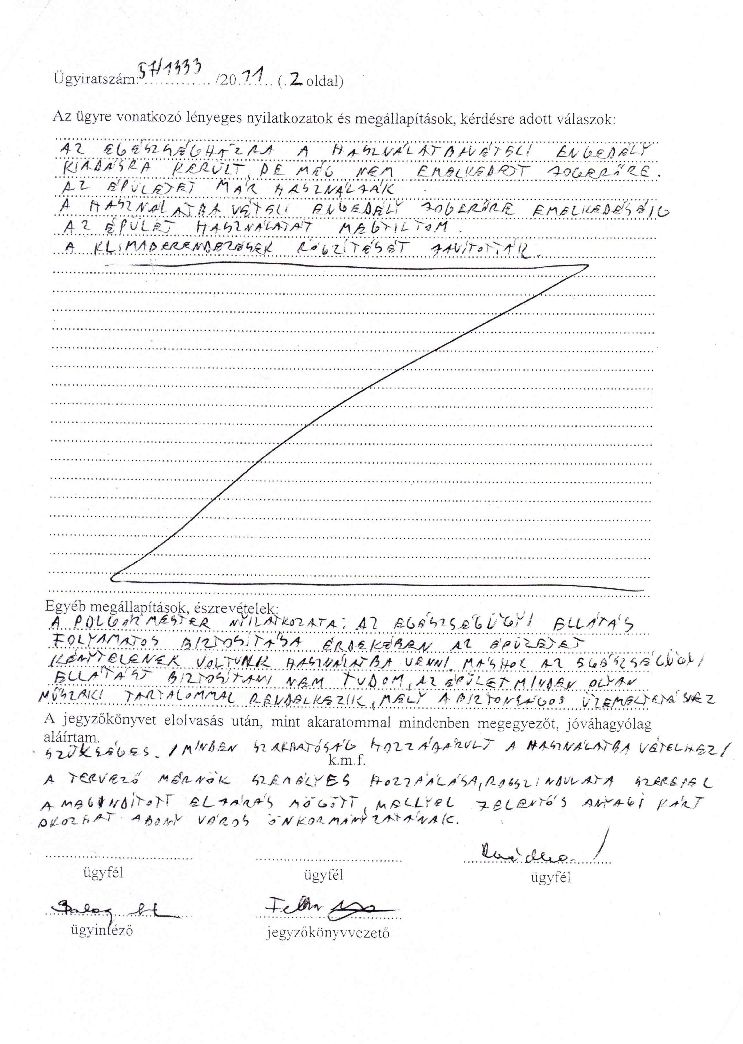 Ügyiratszám: 57/1333 /2011 (.2 oldal)
Az ügyre vonatkozó lényeges nyilatkozatok és megállapítások, kérdésre adott válaszok:
AZ EGÉSZSÉGHÁZRA A HASZNÁLATBAVÉTELI ENGEDÉLY
KIADÁSRA KERÜLT, DE MÉG NEM EMELKEDETT JOGERŐRE.
AZ ÉPÜLETET MÁR HASZNÁLJÁK.
A HASZNÁLATBA VÉTELI ENGEDÉLY JOGERŐRE EMELKEDÉSÉIG
AZ ÉPÜLET HASZNÁLATÁT MEGTILTOM.
A KLÍMABERENDEZÉSEK RÖGZÍTÉSÉT JAVÍTOTTÁK.
Egyéb megállapítások, észrevételek:
A POLGÁRMESTER NYILATKOZATA: AZ EGÉSZSÉGÜGYI ELLÁTÁS
FOLYAMATOS BIZTOSÍTÁSA ÉRDEKÉBEN AZ ÉPÜLETET
KÉNYTELENEK VOLTUNK HASZNÁLATBA VENNI. MÁSHOL AZ EGÉSZSÉGÜGYI
ELLÁTÁST BIZTOSÍTANI NEM TUDOM, AZ ÉPÜLET MINDEN OLYAN
MŰSZAKI TARTALOMMAL RENDELKEZIK, MELY A BIZTONSÁGOS ÜZEMELTETÉSHEZ
A jegyzőkönyvet elolvasás után, mint akaratommal mindenben megegyezőt, jóváhagyólag
aláírtam.
SZÜKSÉGES. /MINDEN SZAKHATÓSÁG HOZZÁJÁRULT A HASZNÁLATBA VÉTELHEZ/
k.m.f.
A TERVEZŐ MÉRNÖK SZEMÉLYES HOZZÁÁLÁSA, ROSSZINDULATA SZEREPEL
A MEGINDÍTOTT ELJÁRÁS MÖGÖTT, MELLYEL JELENTŐS ANYAGI KÁRT
OKOZHAT ABONY VÁROS ÖNKORMÁNYZATÁNAK.
ügyfél ügyfél ügyfél
ügyintéző jegyzőkönyvvezető